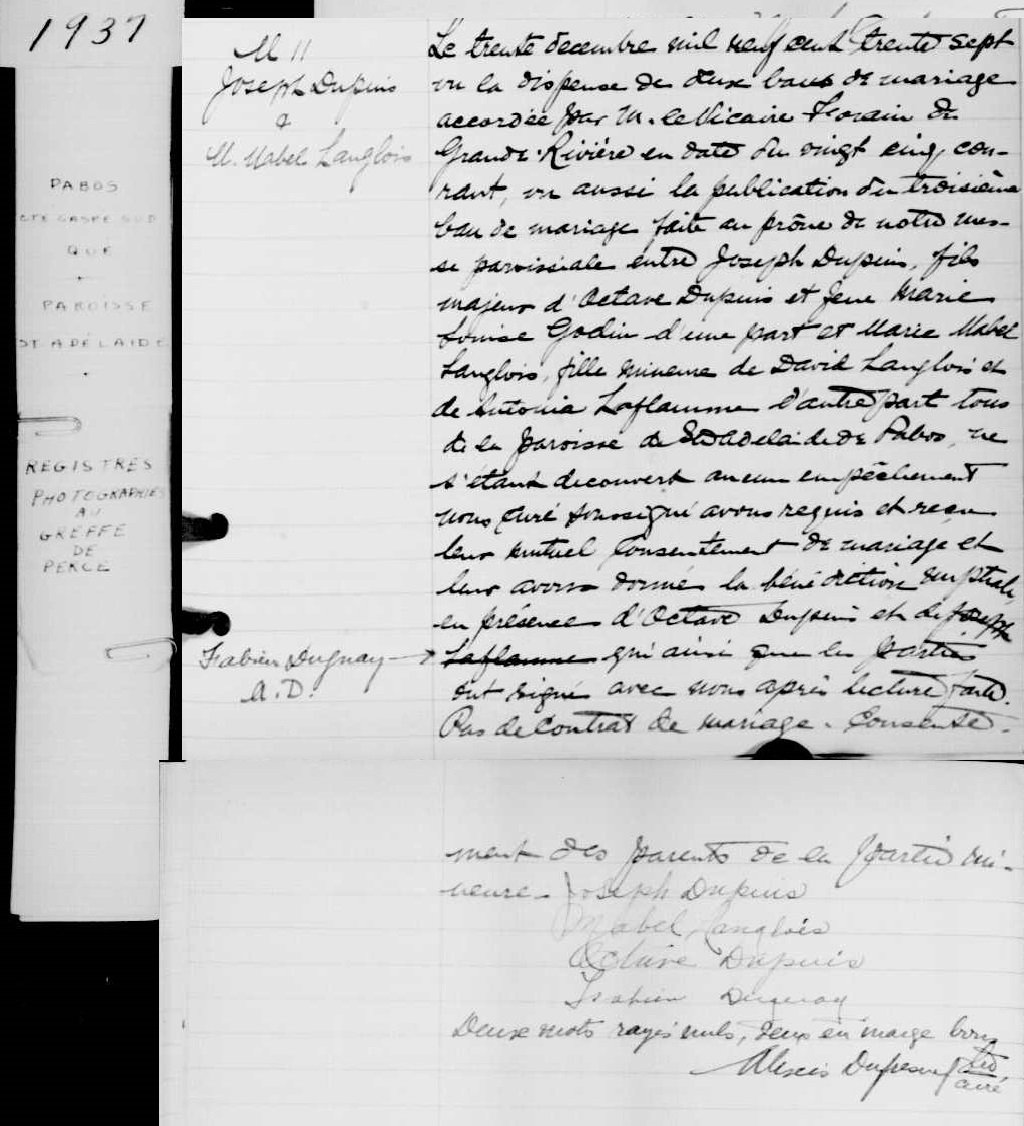 1937
PABOS
CTÉ GASPÉ SUD
QUE
PAROISSE
ST. ADÉLAIDE
REGISTRES
PHOTOGRAPHIÉS
AU
GREFFE
DE
PERCÉ
M 11
Joseph Dupuis
&
M. Mabel Langlois
Le trente decembre mil neuf cent trente sept
vu la dispense de deux bans de mariage
accordée par M. le Vicaire Forain de
Grande-Rivière en date du vingt cinq cou-
rant, vu aussi la publication du troisième
ban de mariage faite au prône de notre mes-
se paroissiale entre Joseph Dupuis, fils
majeur d'Octave Dupuis et feue Marie
Louise Godin d'une part et Marie Mabel
Langlois, fille mineure de David Langlois et
de Antonia Laflamme d'autre part tous
de la paroisse de Ste Adelaide de Pabos, ne
s'étant decouvert aucun empêchement
nous curé soussigné avons requis et reçu
leur mutuel consentement de mariage et
leur avons donné la bénédiction nuptiale,
en présence d'Octave Dupuis et de Joseph
Fabien Duguay
A.D.
Laflamme qui ainsi que les parties
ont signé avec nous après lecture faite.
Pas de Contrat de mariage. Consente-
ment des parents de la partie mi-
neure. Joseph Dupuis
Mabel Langlois
Octave Dupuis
Fabien Duguay
Deux mots rayés nuls, deux en marge bons
Alexis Dufresne
curé